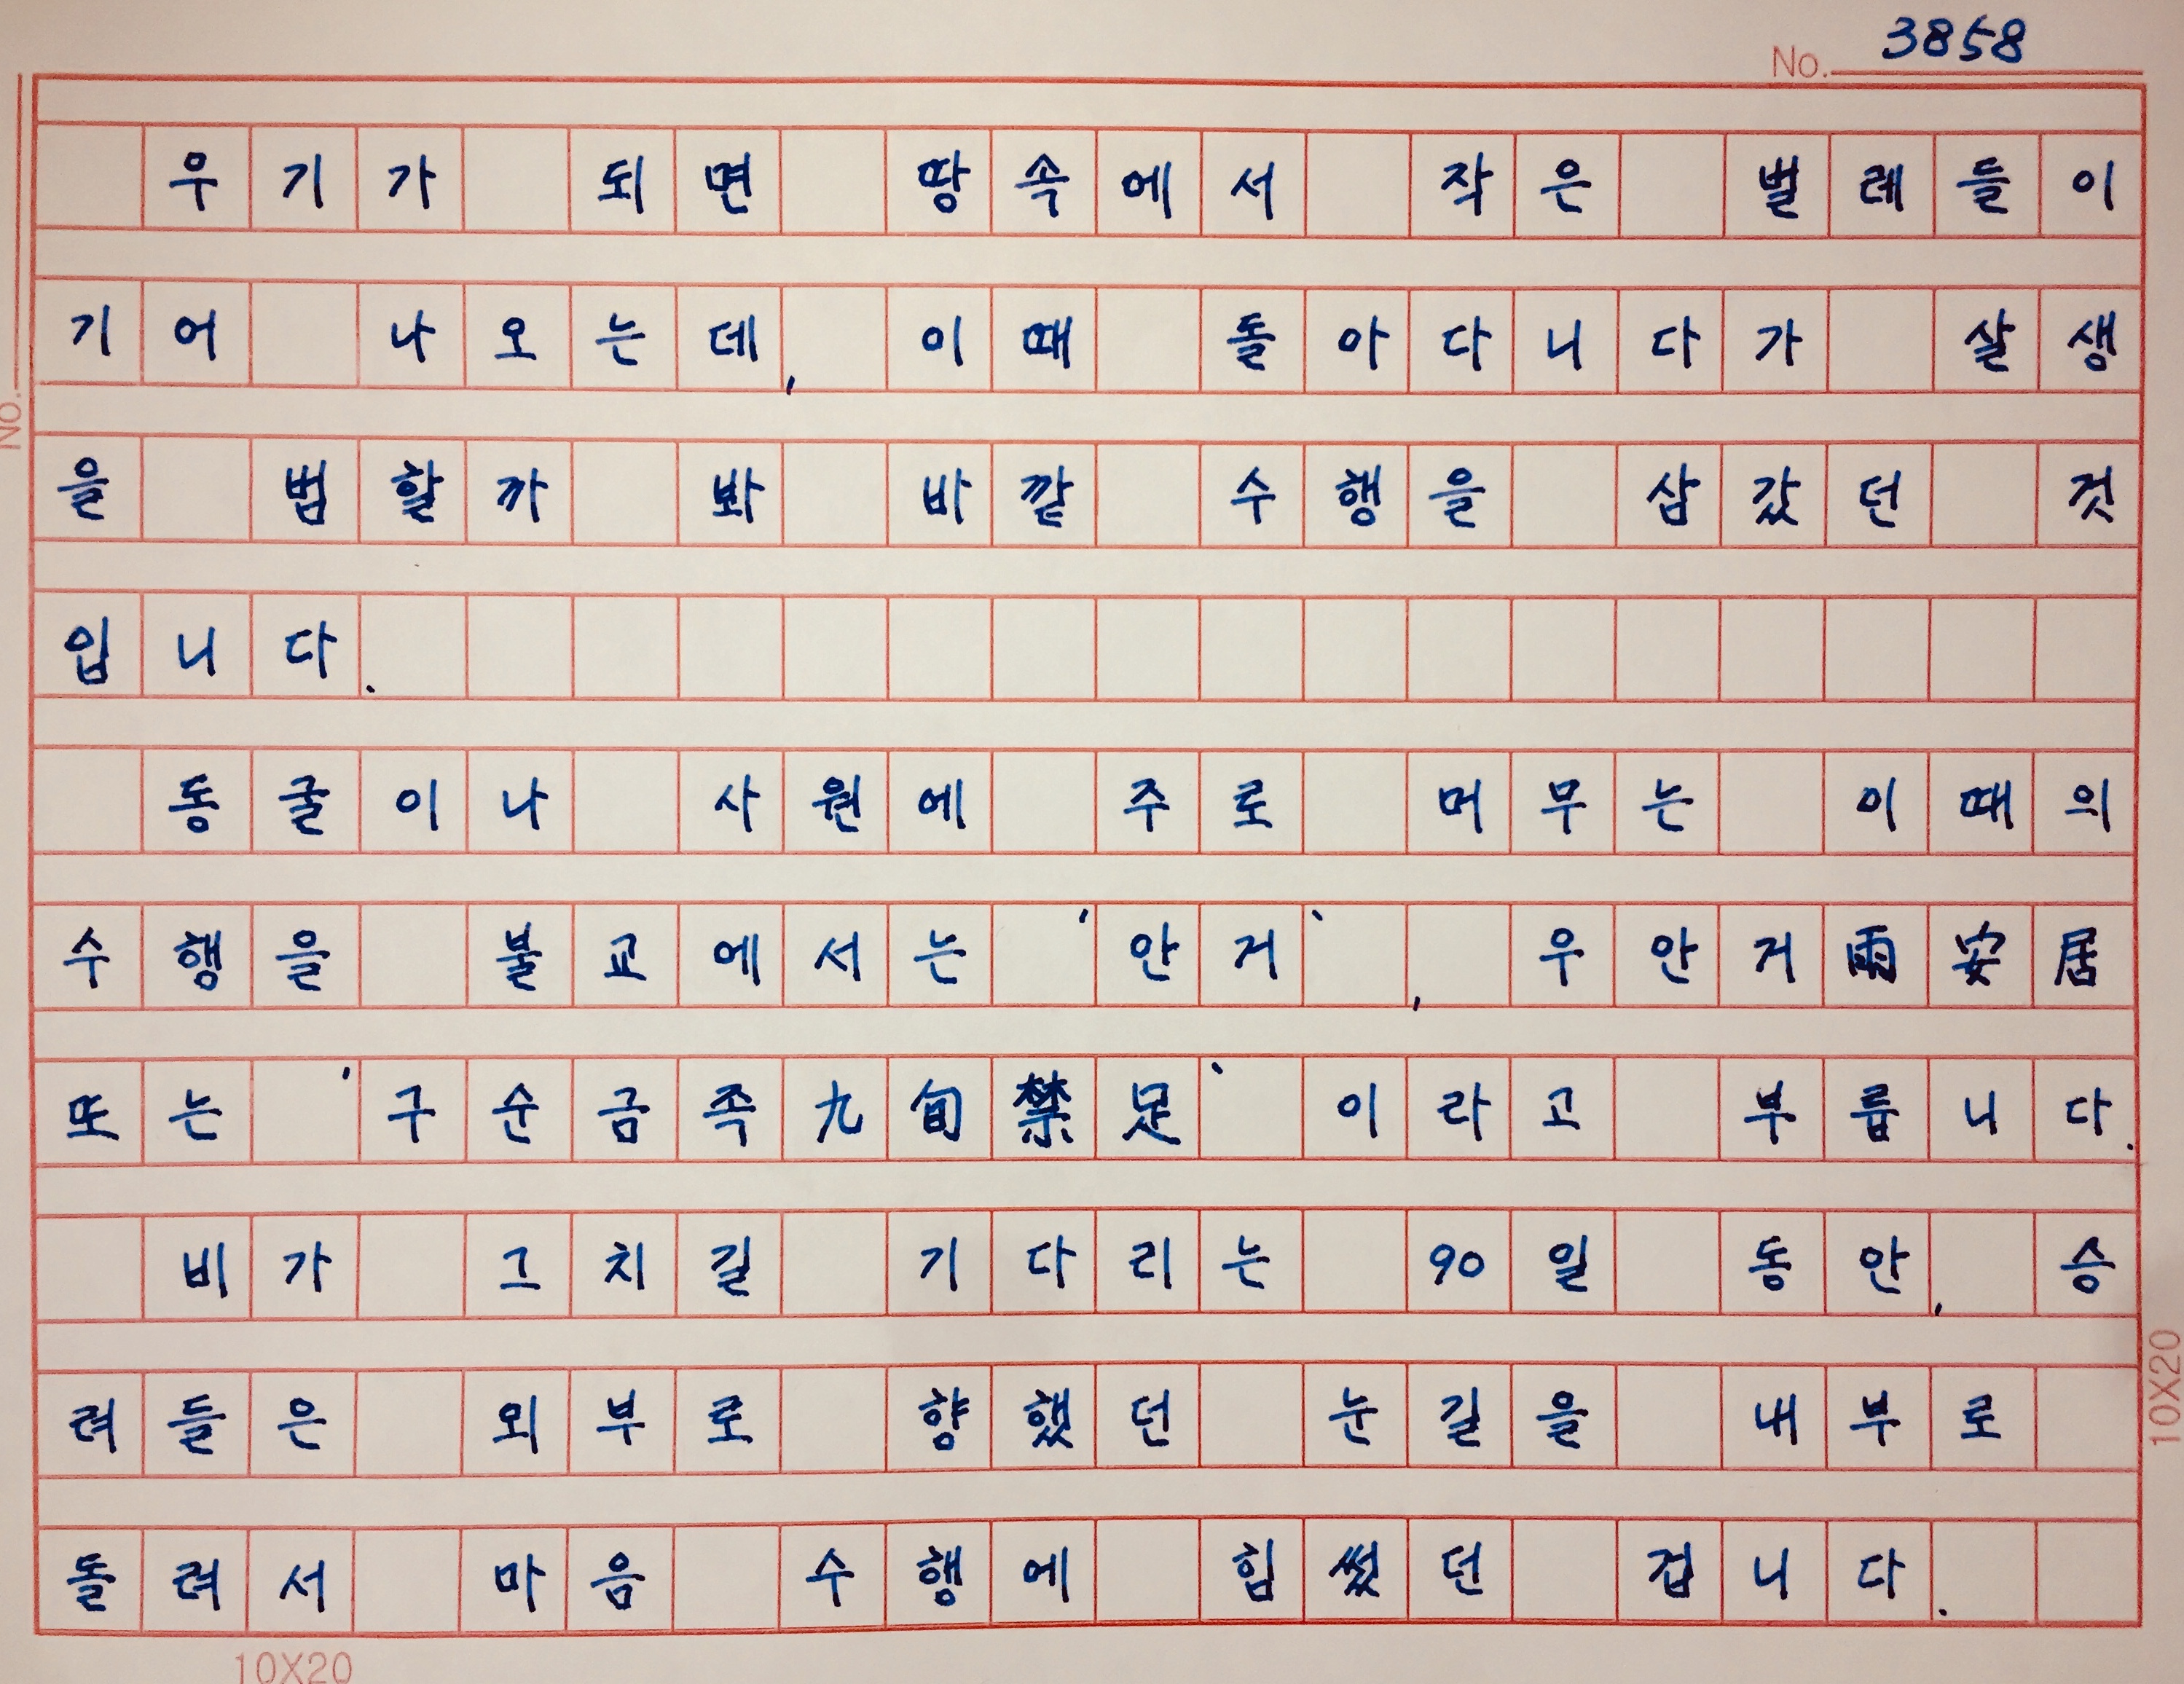 No. 3858
우기가 되면 땅속에서 작은 벌레들이
기어 나오는데, 이때 돌아다니다가 살생
을 범할까 봐 바깥 수행을 삼갔던 것
입니다.
동굴이나 사원에 주로 머무는 이때의
수행을 불교에서는 '안거', 우안거雨安居
또는 '구순금족九旬禁足'이라고 부릅니다.
비가 그치길 기다리는 90일 동안, 승
려들은 외부로 향했던 눈길을 내부로
돌려서 마음 수행에 힘썼던 겁니다.
No.
10X20
10X20